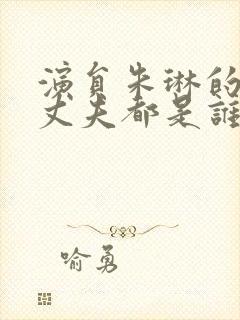 演員朱琳的
丈夫都是誰
喻勇